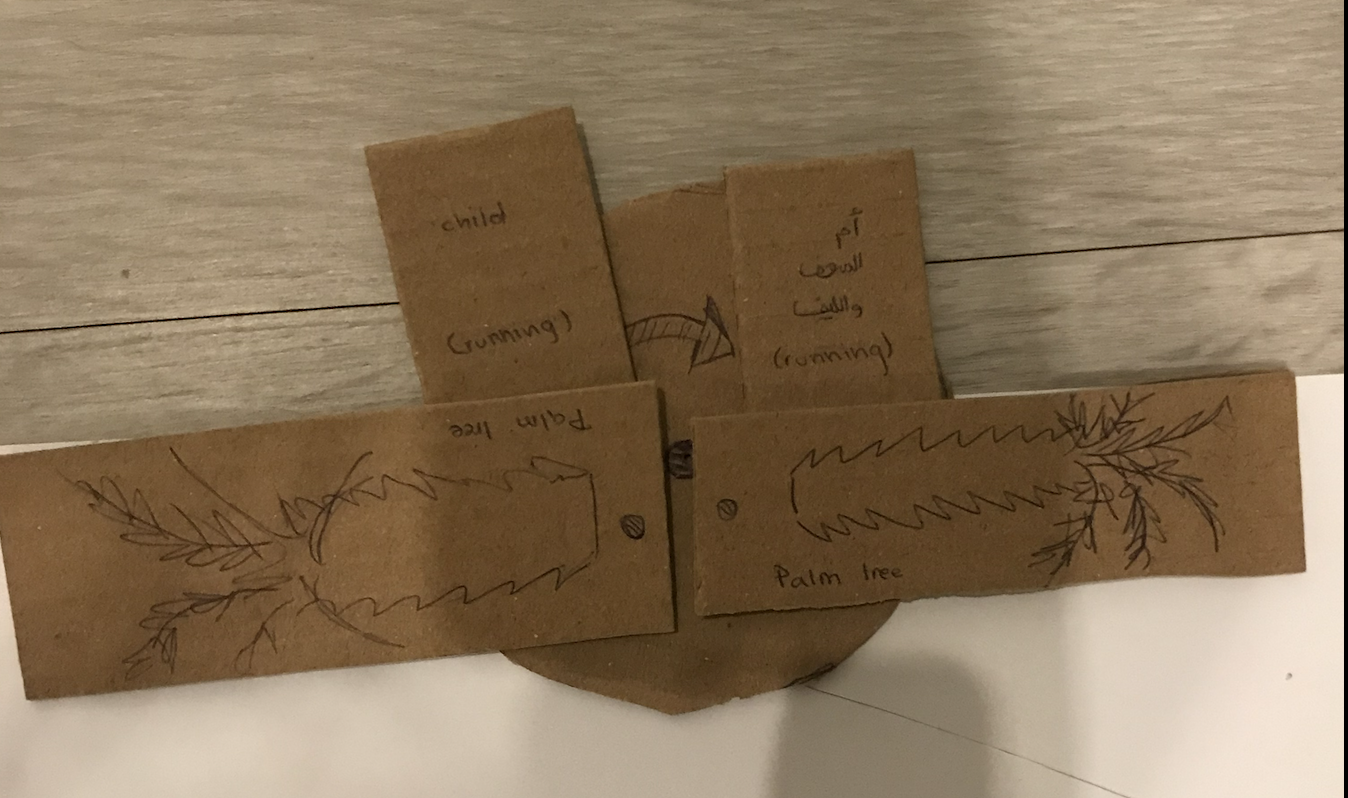 child
(running)
أم
السعف
والليف
(running)
Palm tree
Palm tree